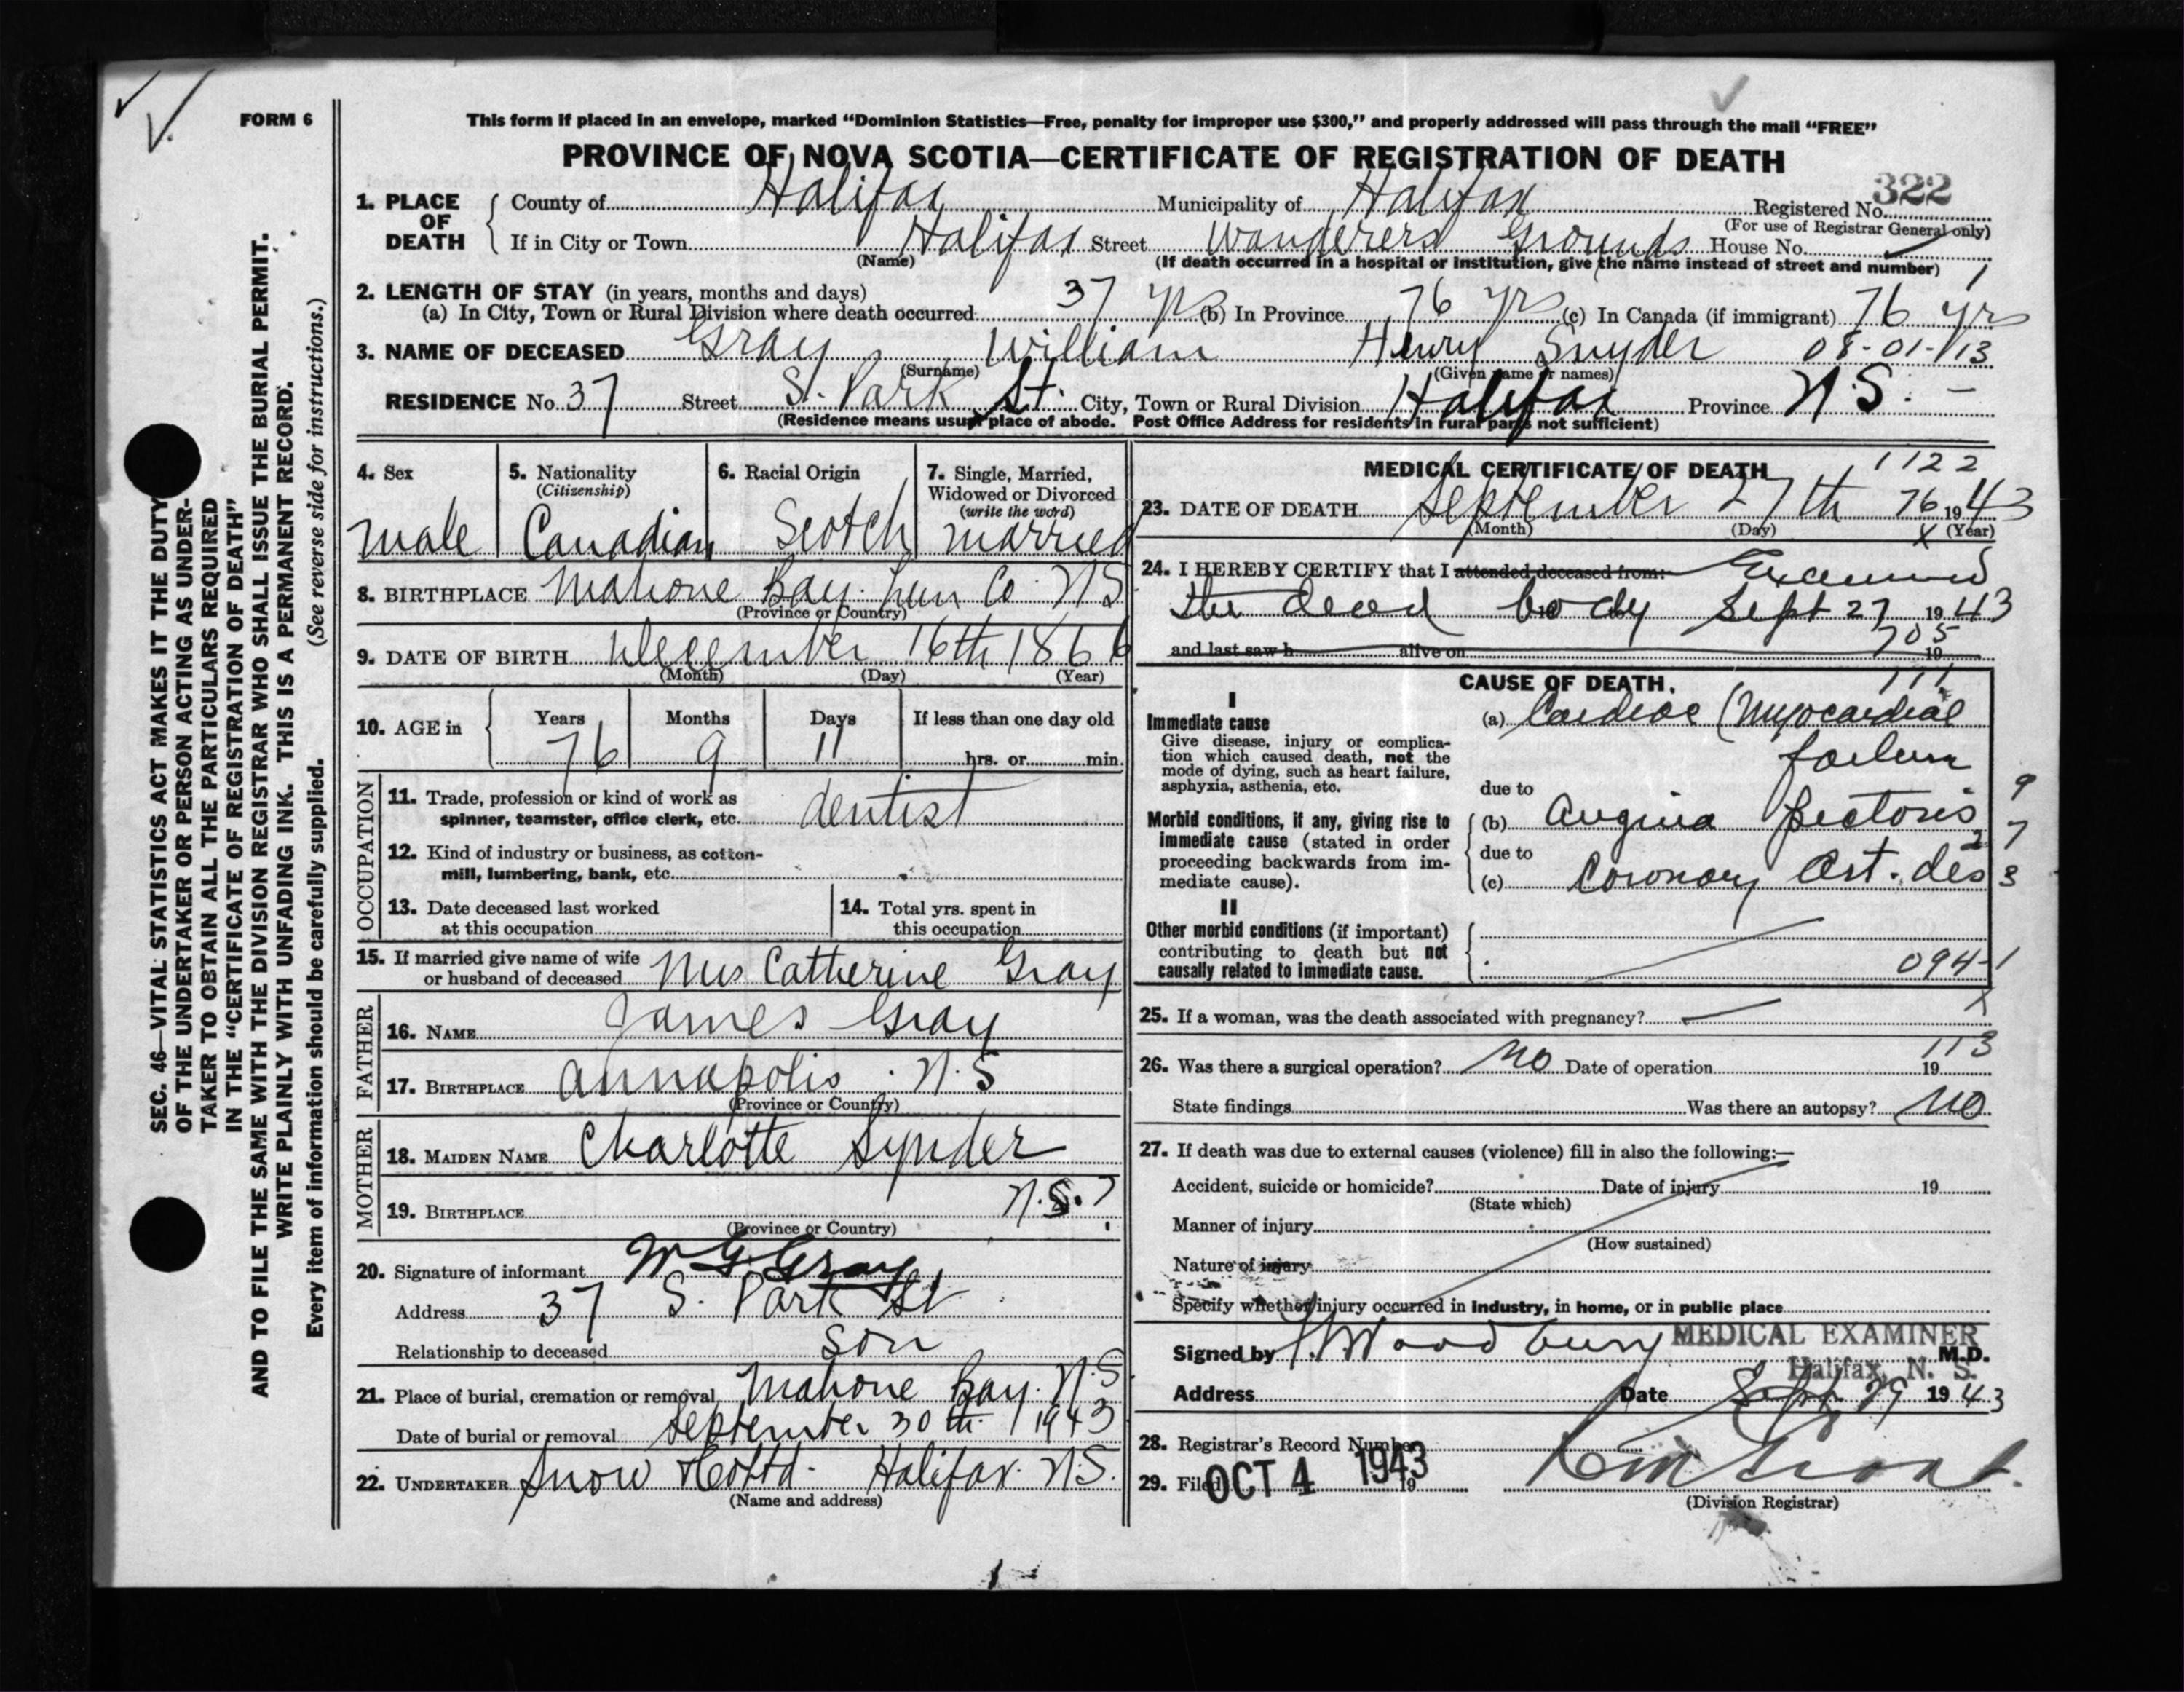 FORM 6
This form if placed in an envelope, marked “Dominion Statistics—Free, penalty for improper use $300,” and properly addressed will pass through the mail “FREE”
PROVINCE OF NOVA SCOTIA—CERTIFICATE OF REGISTRATION OF DEATH
322
1. PLACE OF DEATH County of Halifax Municipality of Halifax Registered No.
(For use of Registrar General only)
If in City or Town Halifax Street Wanderers Grounds House No.
(Name) (If death occurred in a hospital or institution, give the name instead of street and number)
2. LENGTH OF STAY (in years, months and days)
(a) In City, Town or Rural Division where death occurred 37 yrs (b) In Province 76 yrs (c) In Canada (if immigrant) 76 yrs
3. NAME OF DECEASED Gray, William Henry Snyder 08-01-113
(Surname) (Given name or names)
RESIDENCE No. 37 Street S. Park St. City, Town or Rural Division Halifax Province N.S. -
(Residence means usual place of abode. Post Office Address for residents in rural parts not sufficient)
4. Sex
male
5. Nationality
(Citizenship)
Canadian
6. Racial Origin
Scotch
7. Single, Married,
Widowed or Divorced
(write the word)
married
8. BIRTHPLACE Mahone Bay. Lun Co. NS
(Province or Country)
9. DATE OF BIRTH December 16th 1866
(Month) (Day) (Year)
10. AGE in Years Months Days If less than one day old
76 9 11 hrs. or min.
OCCUPATION
11. Trade, profession or kind of work as
spinner, teamster, office clerk, etc. dentist
12. Kind of industry or business, as cotton-
mill, lumbering, bank, etc.
13. Date deceased last worked
at this occupation
14. Total yrs. spent in
this occupation
15. If married give name of wife
or husband of deceased Mrs Catherine Gray
FATHER
16. NAME James Gray
17. BIRTHPLACE Annapolis. N.S
(Province or Country)
MOTHER
18. MAIDEN NAME Charlotte Synder
19. BIRTHPLACE N.S.?
(Province or Country)
20. Signature of informant W G Gray
Address 37 S. Park St
Relationship to deceased son
21. Place of burial, cremation or removal Mahone Bay. N.S
Date of burial or removal September 30th 1943
22. UNDERTAKER Snow & Co Ltd. Halifax. N.S.
(Name and address)
MEDICAL CERTIFICATE OF DEATH
1122
23. DATE OF DEATH September 27th 76 1943
(Month) (Day) (Year)
24. I HEREBY CERTIFY that I attended deceased from: Examined
the dead body Sept 27 1943
705
and last saw h alive on 19
CAUSE OF DEATH.
111
I
Immediate cause
Give disease, injury or complica-
tion which caused death, not the
mode of dying, such as heart failure,
asphyxia, asthenia, etc.
(a) Cardiac (Myocardial
failure
due to
Morbid conditions, if any, giving rise to
immediate cause (stated in order
proceeding backwards from im-
mediate cause).
(b) Angina pectoris
due to
(c) Coronary Art. dis
9
7
3
II
Other morbid conditions (if important)
contributing to death but not
causally related to immediate cause.
094-1
25. If a woman, was the death associated with pregnancy? —
X
113
26. Was there a surgical operation? NO Date of operation 19
State findings Was there an autopsy? NO
27. If death was due to external causes (violence) fill in also the following:—
Accident, suicide or homicide? Date of injury 19
(State which)
Manner of injury
(How sustained)
Nature of injury
Specify whether injury occurred in industry, in home, or in public place
Signed by Woodbury MEDICAL EXAMINER M.D.
Halifax, N. S.
Address Date Sept. 29 1943
28. Registrar's Record Number
29. Filed OCT 4 1943 19
(Division Registrar)
SEC. 46—VITAL STATISTICS ACT MAKES IT THE DUTY
OF THE UNDERTAKER OR PERSON ACTING AS UNDER-
TAKER TO OBTAIN ALL THE PARTICULARS REQUIRED
IN THE “CERTIFICATE OF REGISTRATION OF DEATH”
AND TO FILE THE SAME WITH THE DIVISION REGISTRAR WHO SHALL ISSUE THE BURIAL PERMIT.
WRITE PLAINLY WITH UNFADING INK. THIS IS A PERMANENT RECORD.
Every item of information should be carefully supplied. (See reverse side for instructions.)